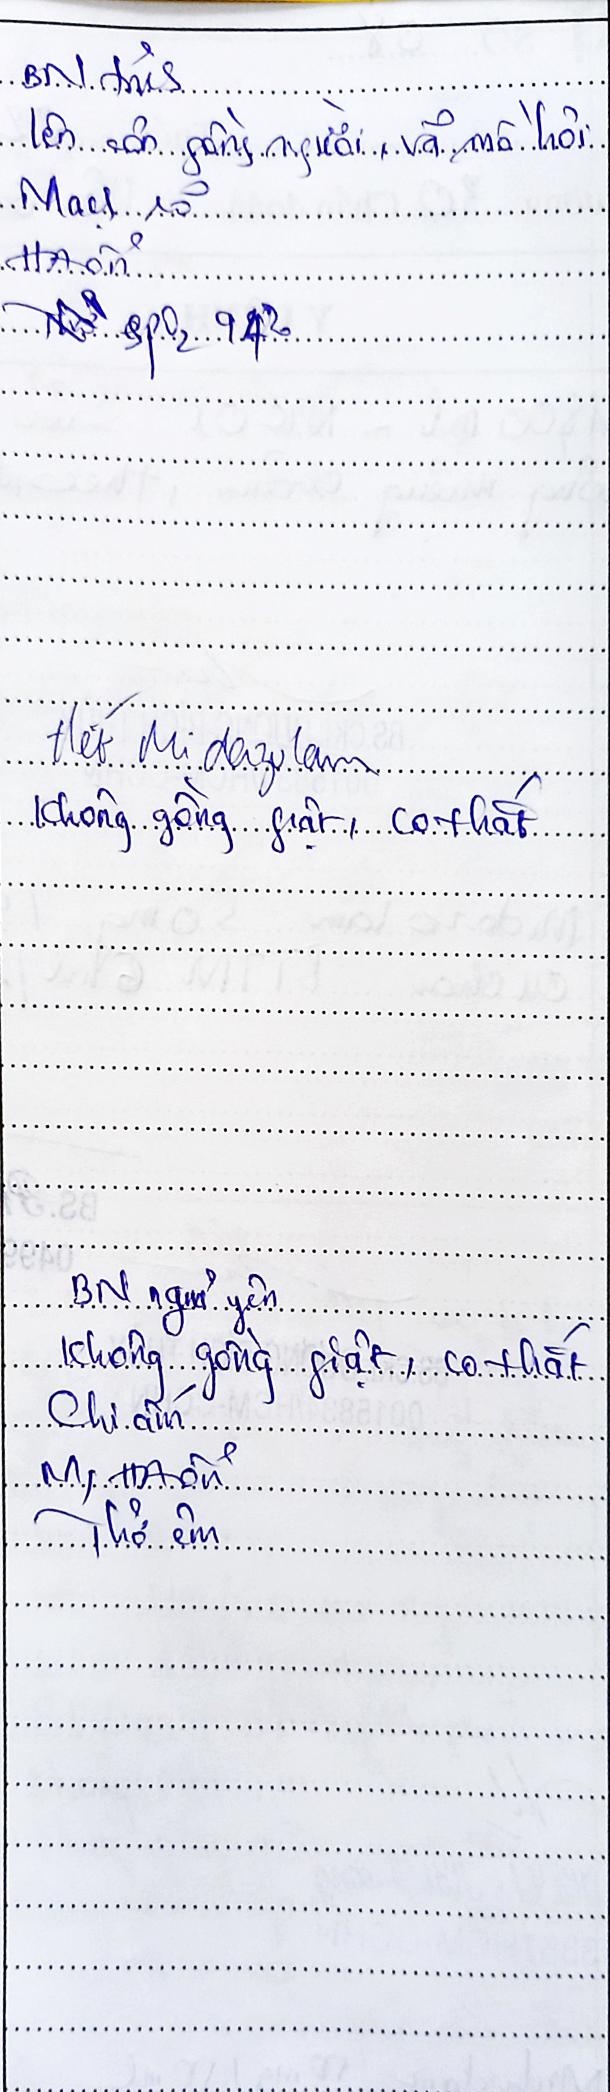 BN tỉnh
lên cơn gồng người, vã mồ hôi
Mạch rõ
HA ổn
SpO2 94%
Hết Midazolam
Không gồng giật, co thắt
BN ngủ yên
Không gồng giật, co thắt
Chi ấm
M, HA ổn
Thở êm